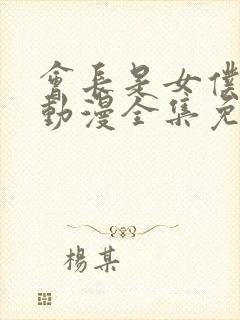 會長是女僕
動漫全集免
楊某